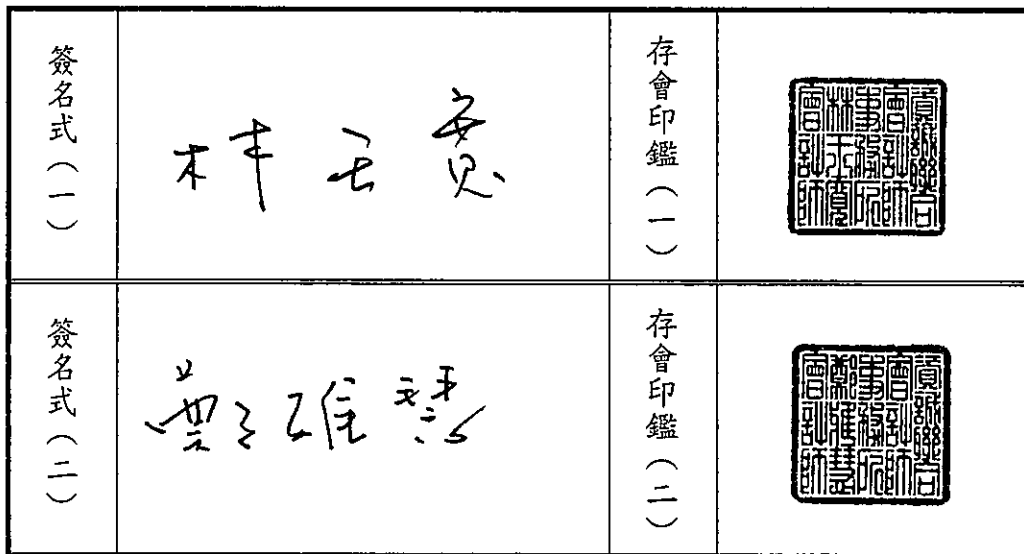 簽名式（一）
林玉寬
存會印鑑（一）
資誠聯合
會計師
事務所
林玉寬
會計師
簽名式（二）
鄭雅慧
存會印鑑（二）
資誠聯合
會計師
事務所
鄭雅慧
會計師